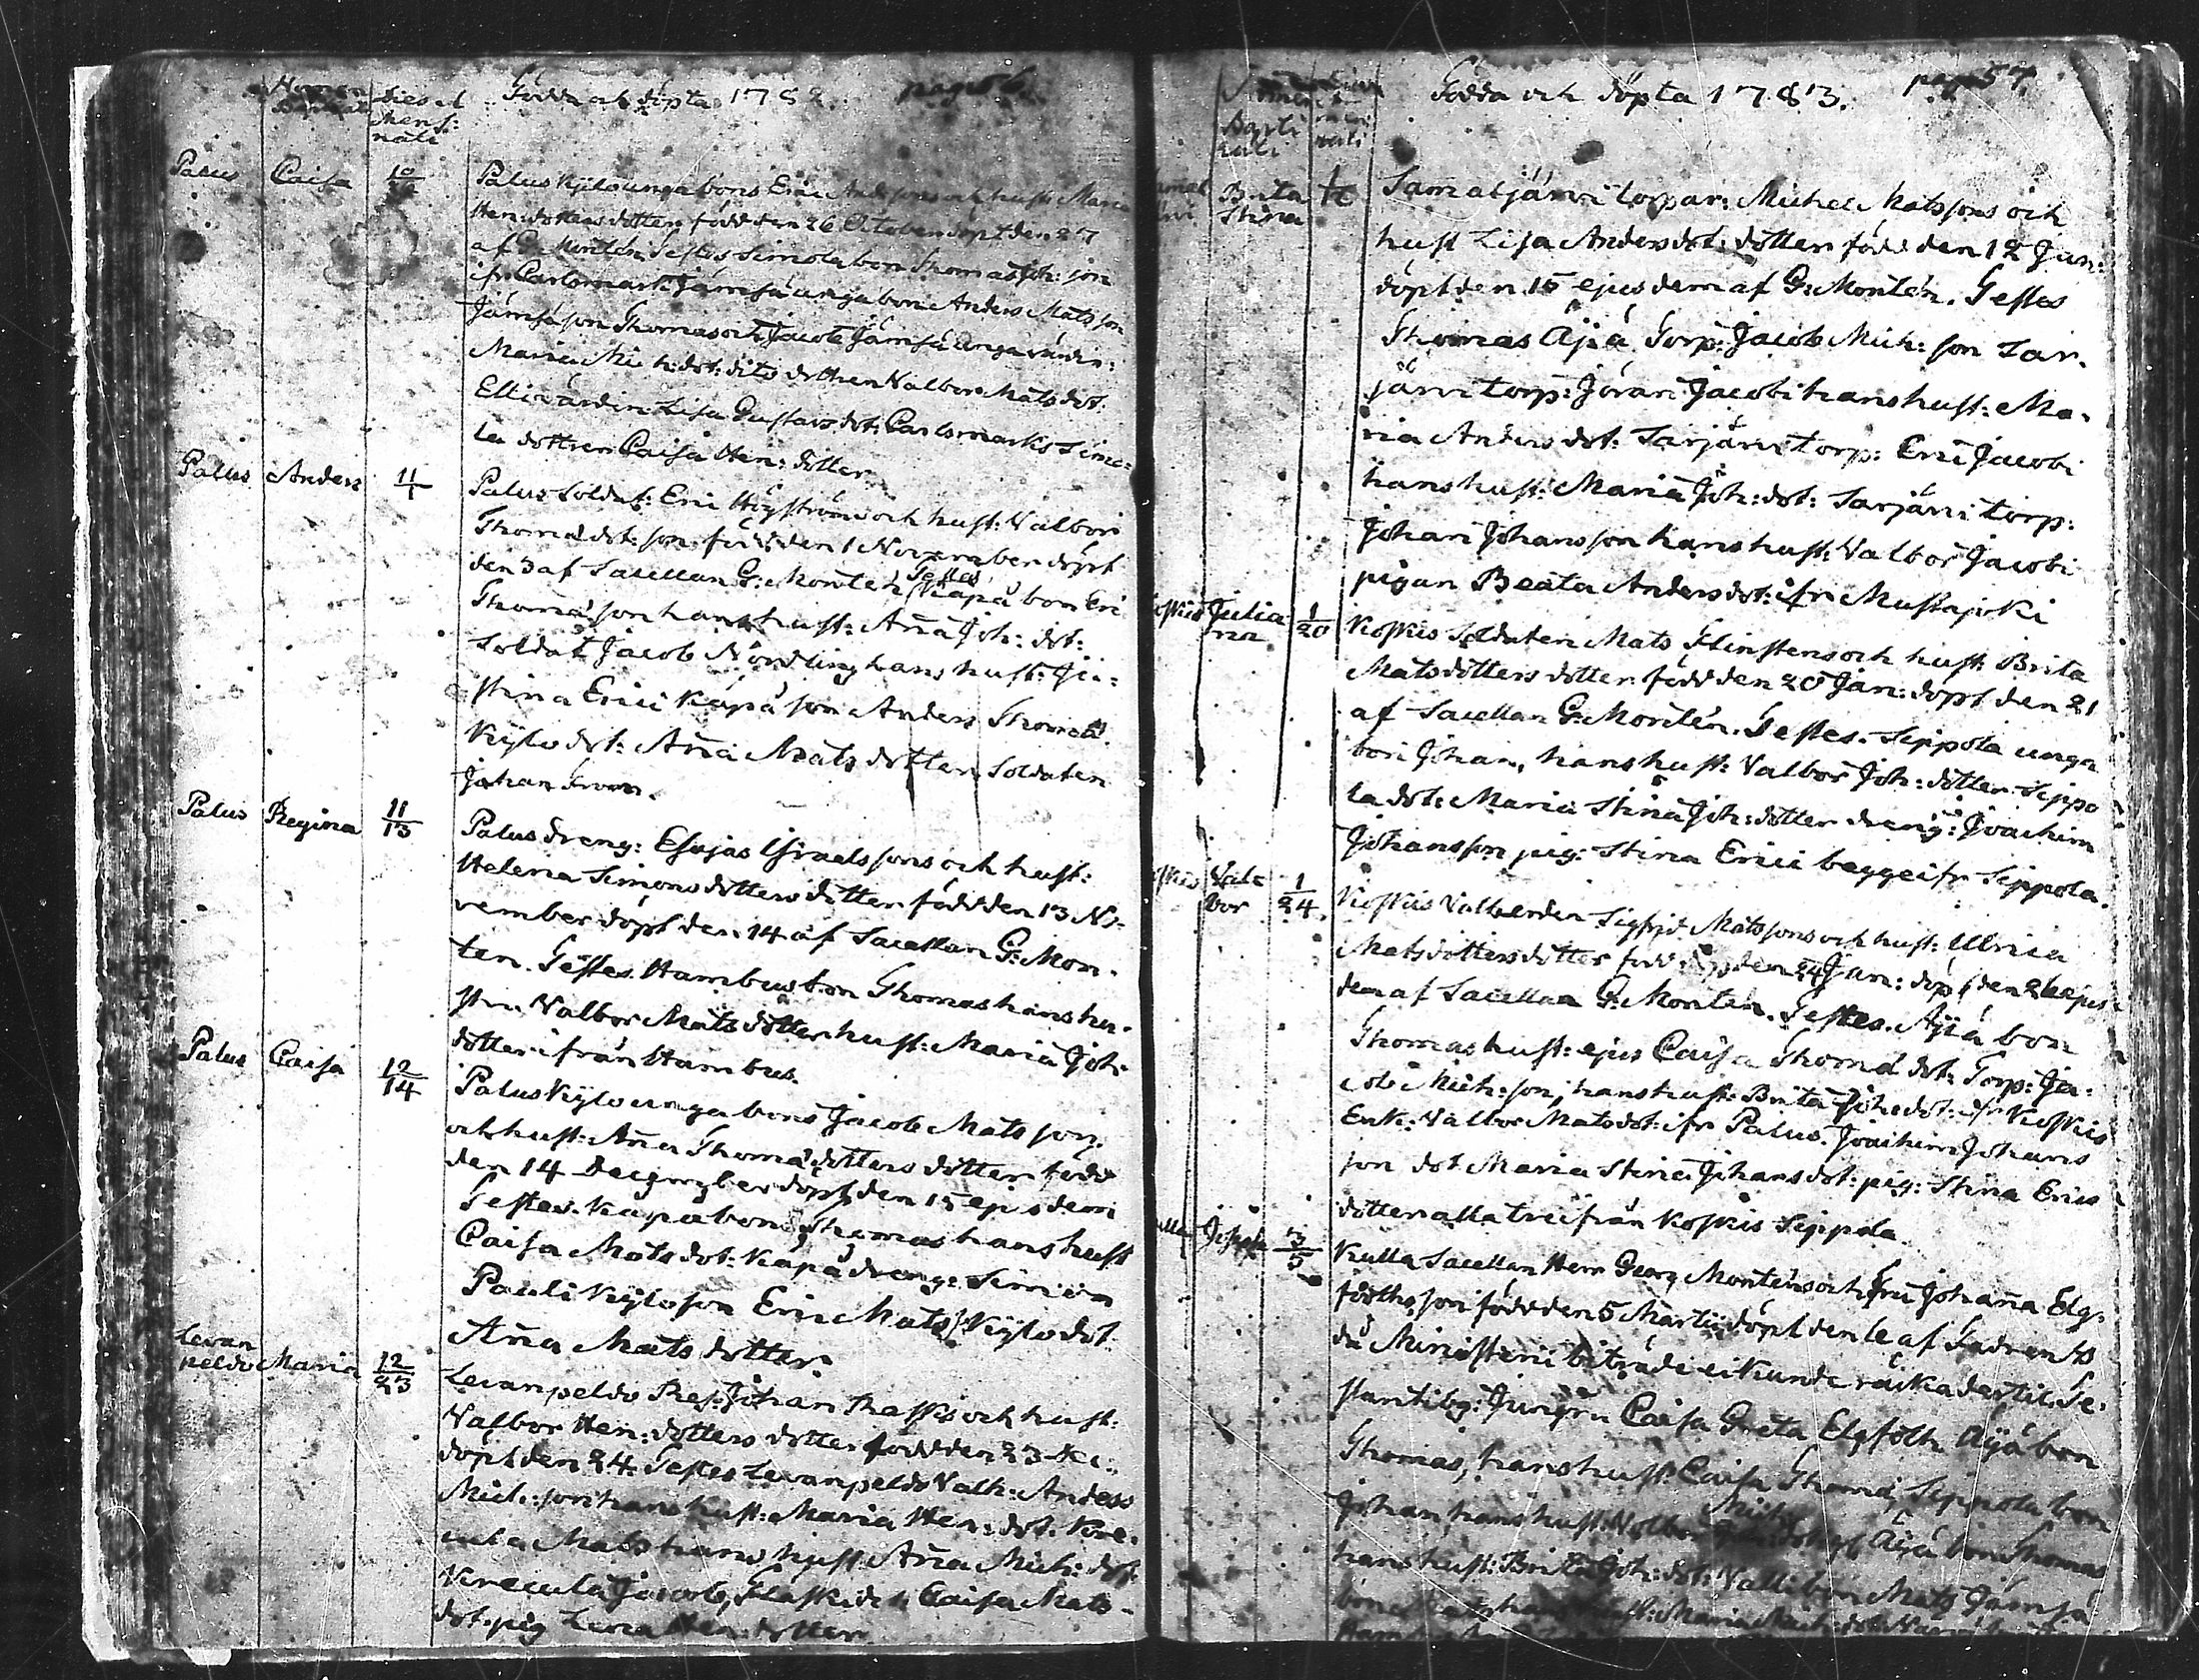 Nomen
Dies et
Mens:
nati
Födda och döpta 1782.
pag: 56.
Palus Caisa 10/26
Palus Kylo unga bons Eric Andersons och hust: Maria
Hen: dotters dotter född den 26 October döpt den 27
af G: Montén Testes Simola bon Thomas Joh: son
ifr Carlsmark Jämsä unga bon Anders Mats son
Jämsä son Thomas och Jacob Jämsä unga värdin:
Maria Mich: dot: dito dottren Valbor Mats dot:
Elli värdin Lisa Gustavs dot: Carlsmarks Simo:
la dottren Caisa Hen: dotter
Palus Anders 11/1
Palus Soldat: Eric Högströms och hust: Valbor
Thomæ dot: son född den 1 November döpt
den 3 af Sacellan G: Montén Testes Käpä bon Eric
Thomæ son hans hust: Aña Joh: dot:
Soldat Jacob Nordling hans hust: Ju:
stina Erici Käpä son Anders Thomæ
Kylo dot: Aña Mats dotter Soldaten
Johan From.
Palus Regina 11/13
Palus dreng: Esajas Israels sons och hust:
Helena Simons dotters dotter född den 13 No:
vember döpt den 14 af Sacellan G: Mon:
tén. Testes Hambus bon Thomas hans hu:
stru Valbor Mats dotter hust: Maria Joh:
dotter ifrån Hambus.
Palus Caisa 12/14
Palus Kylo unga bons Jacob Mats son:
och hust: Aña Thomæ dotters dotter född
den 14 December döpt den 15 ejusdem
Testes. Käpä bon Thomas hans hust
Caisa Mats dot: Käpä dreng: Simon
Pauli Kylo son Eric Mats: Kylo dot
Aña Mats dotter
Levan
peldo Maria 12/23
Levanpeldo Johan Raskis och hust:
Valbor Hen: dotters dotter född den 23
döpt den 24. Testes Levanpeldo Anders
Mich: son hans hust: Maria Hen: dot:
Mats hans hust Aña Mich: dot:
Jacob, Caisa Mats
dot: pig Lena Hen: dotter
Födda och döpta 1783.
pag: 57.
Brita
Stina
Samatjärvi torpar: Michel Mats sons och
hust Lisa Anders dot: dotter född den 12 Jan:
döpt den 15 ejusdem af G: Montén. Testes
Thomas Äjä Torp: Jacob Mich: son Sar:
järvi torp: Jöran Jacobi hans hust: Ma:
ria Anders dot: Sarjärvi torp: Eric Jacobi
hans hust: Maria Joh: dot: Sarjärvi torp:
Johan Johansson hans hust: Valbor Jacobi
pigan Beata Anders dot: ifr Mustajoki
Koskis Julia
na 1/20
Koskis Soldaten Mats Flinstens och hust: Brita
Matsdotters dotter född den 20 Jan: döpt den 21
af Sacellan G: Montén. Testes. Seppola unga
bon Johan, hans hust: Valbor Joh: dotter Seppo
la dot: Maria Stina Joh: dotter dreng: Joachim
Johansson pig: Stina Erici begge ifr Seppola.
Koskis Val:
bor 1/24.
Koskis Sigfrid Matssons och hust: Ulrica
Matsdotters dotter född den 24 Jan: döpt den 26 ejus
dem af Sacellan G: Montén. Testes. Äjä bon
Thomas hust: ejus Caisa Thomæ dot: Torp: Ja:
cob Mich: son, hans hust: Brita Joh: dot: ifr Koskis
Enk: Valbor Mats dot: ifr Palus. Joachim Johans
son dot Maria Stina Johans dot: pig: Stina Erics
dotter alla tre ifrån Koskis Seppola
3/5
Kulla Sacellan Herr Georg Monténs och Fru Johaña Elg:
fölths son född den 5 Martii döpt den 6 af Fadren
då Ministerii biträde ei kunde räckas dertil. Te:
stantibg: Jungfru Caisa Greta Elgfölth Äjä bon
Thomas, hans hust: Caisa Thomæ, Seppola bon
Johan hans hust: Valbor Äjä bon Thomas
hans hust: Brita Joh: dot: Valli bon Mats Jämsä
bon Mats hans hust: Maria Mich: dot